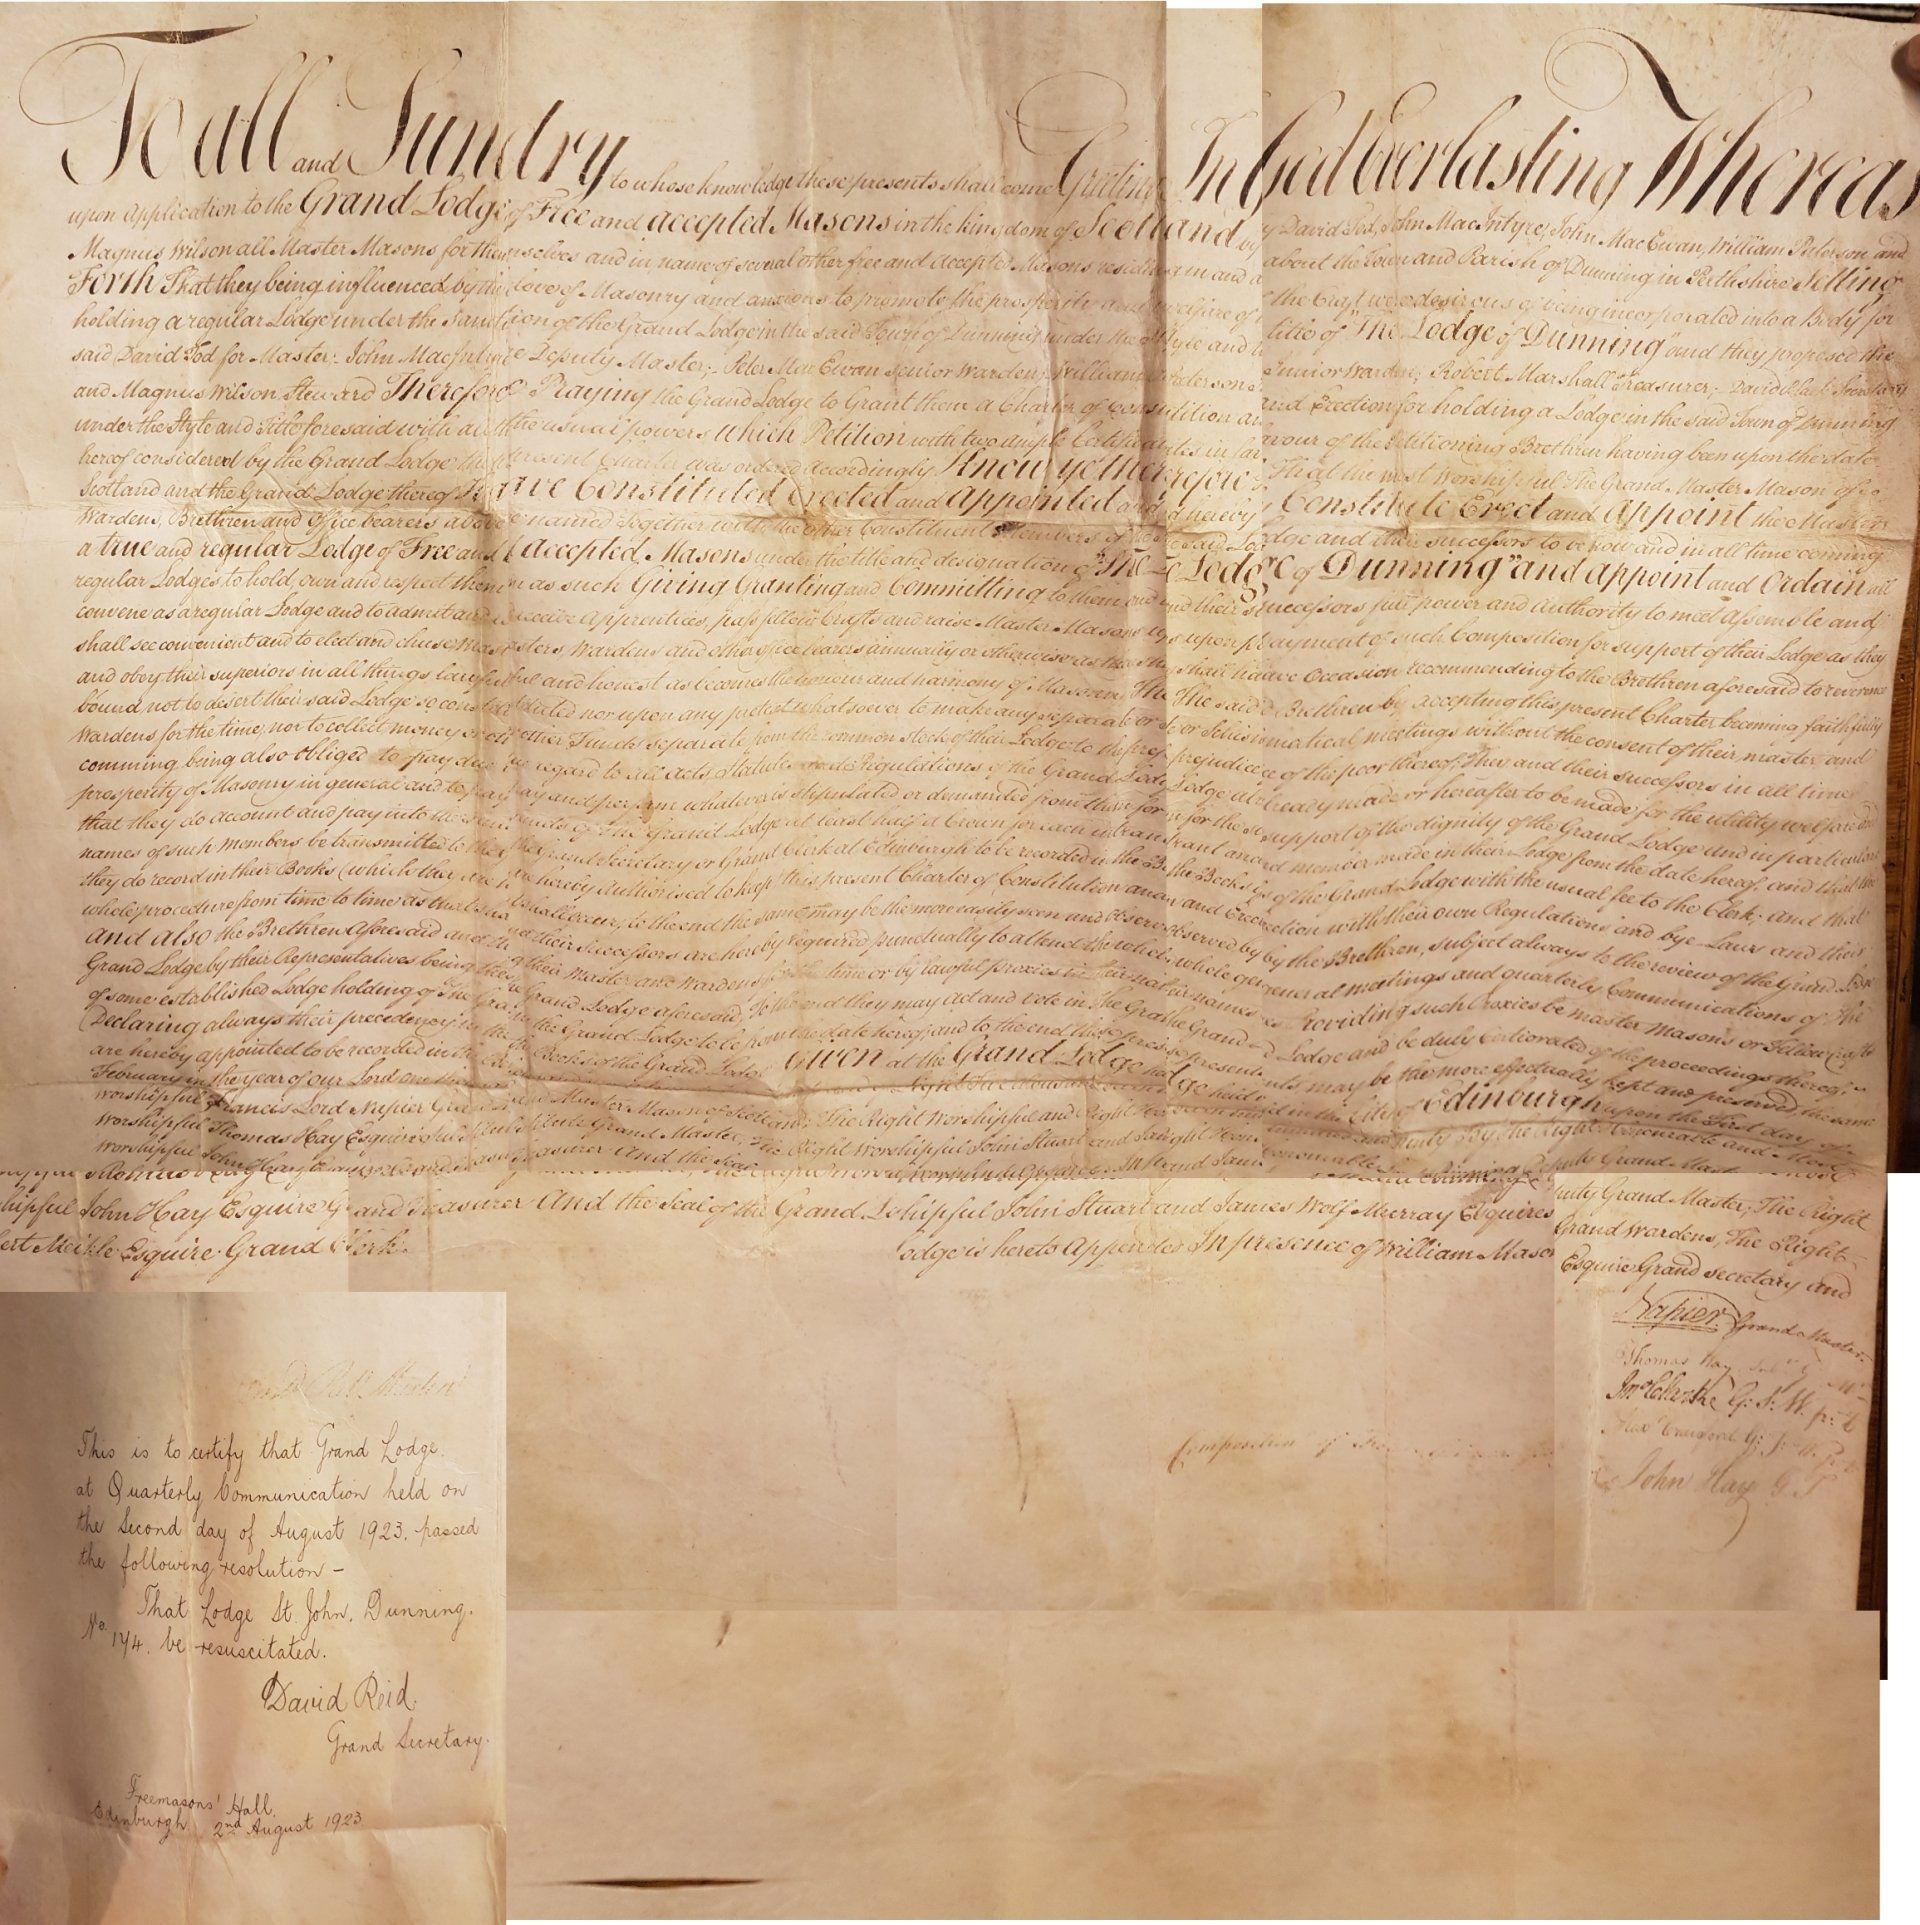 To all and Sundry to whose knowledge these presents shall come Greeting In God Everlasting Whereas
upon application to the Grand Lodge of Free and accepted Masons in the kingdom of Scotland by David Tod, John MacIntyre, John MacEwan, William Paterson and
Magnus Wilson all Master Masons for themselves and in name of several other free and accepted Masons residing in and about the Town and Parish of Dunning in Perthshire Setting
Forth That they being influenced by the love of Masonry and anxious to promote the prosperity and welfare of the Craft were desirous of being incorporated into a Body for
holding a regular Lodge under the Sanction of the Grand Lodge in the said Town of Dunning under the Style and title of "The Lodge of Dunning" and they proposed the
said David Tod for Master; John MacIntyre Deputy Master; Peter MacEwan Senior Warden; William Paterson Junior Warden; Robert Marshall Treasurer; David Clark Secretary
and Magnus Wilson Steward Therefore Praying the Grand Lodge to Grant them a Charter of Constitution and Erection for holding a Lodge in the said Town of Dunning
under the Style and Title foresaid with all the usual powers Which Petition with two ample Certificates in favour of the Petitioning Brethren having been upon the date
hereof considered by the Grand Lodge the present Charter was ordered accordingly Know ye therefore That the most Worshipful The Grand Master Mason of
Scotland and the Grand Lodge thereof Have Constituted Erected and Appointed and hereby Constitute Erect and Appoint the Master
Wardens, Brethren and office bearers above named together with the other Constituent Members of the said Lodge and their successors to be now and in all time coming
a true and regular Lodge of Free and accepted Masons under the title and designation of "The Lodge of Dunning" and Appoint and Ordain all
regular Lodges to hold, own and respect them as such Giving Granting and Committing to them and their successors full power and authority to meet Assemble and
convene as a regular Lodge and to admit and receive Apprentices, pass fellow Crafts and raise Master Masons upon payment of such Composition for support of their Lodge as they
shall see convenient and to elect and chuse Masters, Wardens and other office bearers annually or otherwise as they shall have Occasion recommending to the Brethren aforesaid to reverence
and obey their superiors in all things lawful and honest as becomes the honour and harmony of Masonry, The said Brethren by accepting this present Charter becoming faithfully
bound, not to desert their said Lodge so constituted nor upon any pretext whatsoever to make any separate or Schismatical meetings without the consent of their master and
Wardens for the time, nor to collect money or other Funds separate from the common stock of their Lodge to the prejudice of the poor thereof; They and their successors in all time
comming being also obliged to pay due regard to all Acts, Statutes and Regulations of the Grand Lodge already made or hereafter to be made for the utility welfare and
prosperity of Masonry in general and to pay and perform whatever is stipulated or demanded from them for the support of the dignity of the Grand Lodge and in particular
that they do account and pay into the Funds of The Grand Lodge at least half a Crown for each intrant and member made in their Lodge from the date hereof, and that the
names of such members be transmitted to the Grand Secretary or Grand Clerk at Edinburgh to be recorded in the Books of the Grand Lodge with the usual fee to the Clerk; and that
they do record in their Books (which they are hereby authorised to keep) this present Charter of Constitution and Erection with their own Regulations and bye-Laws and their
whole procedure from time to time as that shall occur, to the end the same may be the more easily seen and observed by the Brethren, subject always to the review of the Grand Lodge
and also the Brethren aforesaid and their successors are hereby required punctually to attend the whole general meetings and quarterly Communications of The
Grand Lodge by their Representatives being their Master and Wardens for the time or by lawful proxies in their names Providing such Proxies be master Masons or Fellow Crafts
of some established Lodge holding of The Grand Lodge aforesaid, To the end they may act and vote in The Grand Lodge and be duly Certiorated of the proceedings thereof;
Declaring always their precedency in the Grand Lodge to be from the date hereof; and to the end these presents may be the more effectually kept and preserved the same
are hereby appointed to be recorded in the Books of the Grand Lodge Given at the Grand Lodge held in the City of Edinburgh upon the First day of
February in the year of our Lord one thousand
worshipful Francis Lord Napier Grand Master Mason of Scotland; The Right Worshipful and Right
Worshipful Thomas Hay Esquire Substitute Grand Master; The Right Worshipful John Stuart and
worshipful John Hay Esquire Grand Treasurer And the Seal
shipful John Hay Esquire Grand Treasurer And the Seal of the Grand Lodge is hereto Appended In presence of William Mason Esquire Grand Secretary and
shipful John Stuart and James Wolf Murray Esquires Grand Wardens, The Right
Deputy Grand Master; The Right
Meikle Esquire Grand Clerk
Napier Grand Master
Thomas Hay
John Hay G T
Composition
This is to certify that Grand Lodge
at Quarterly Communication held on
the Second day of August 1923, passed
the following resolution –
That Lodge St. John, Dunning.
No. 174. be resuscitated.
David Reid.
Grand Secretary.
Freemasons' Hall.
Edinburgh 2nd August 1923